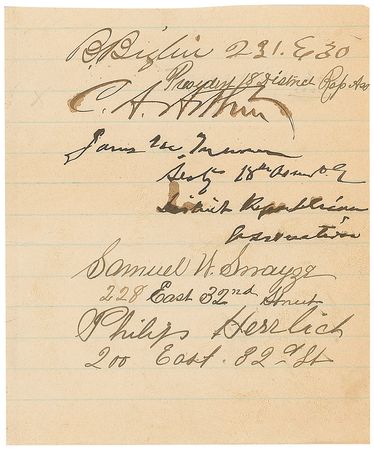 B. Biglin 231. E 30
President 18 District Rep Assn
C. A. Arthur
James
Secty 18th
District Republican
Association
Samuel W. Swayze
228 East 32nd Street
Philip Herrlich
200 East. 82d St